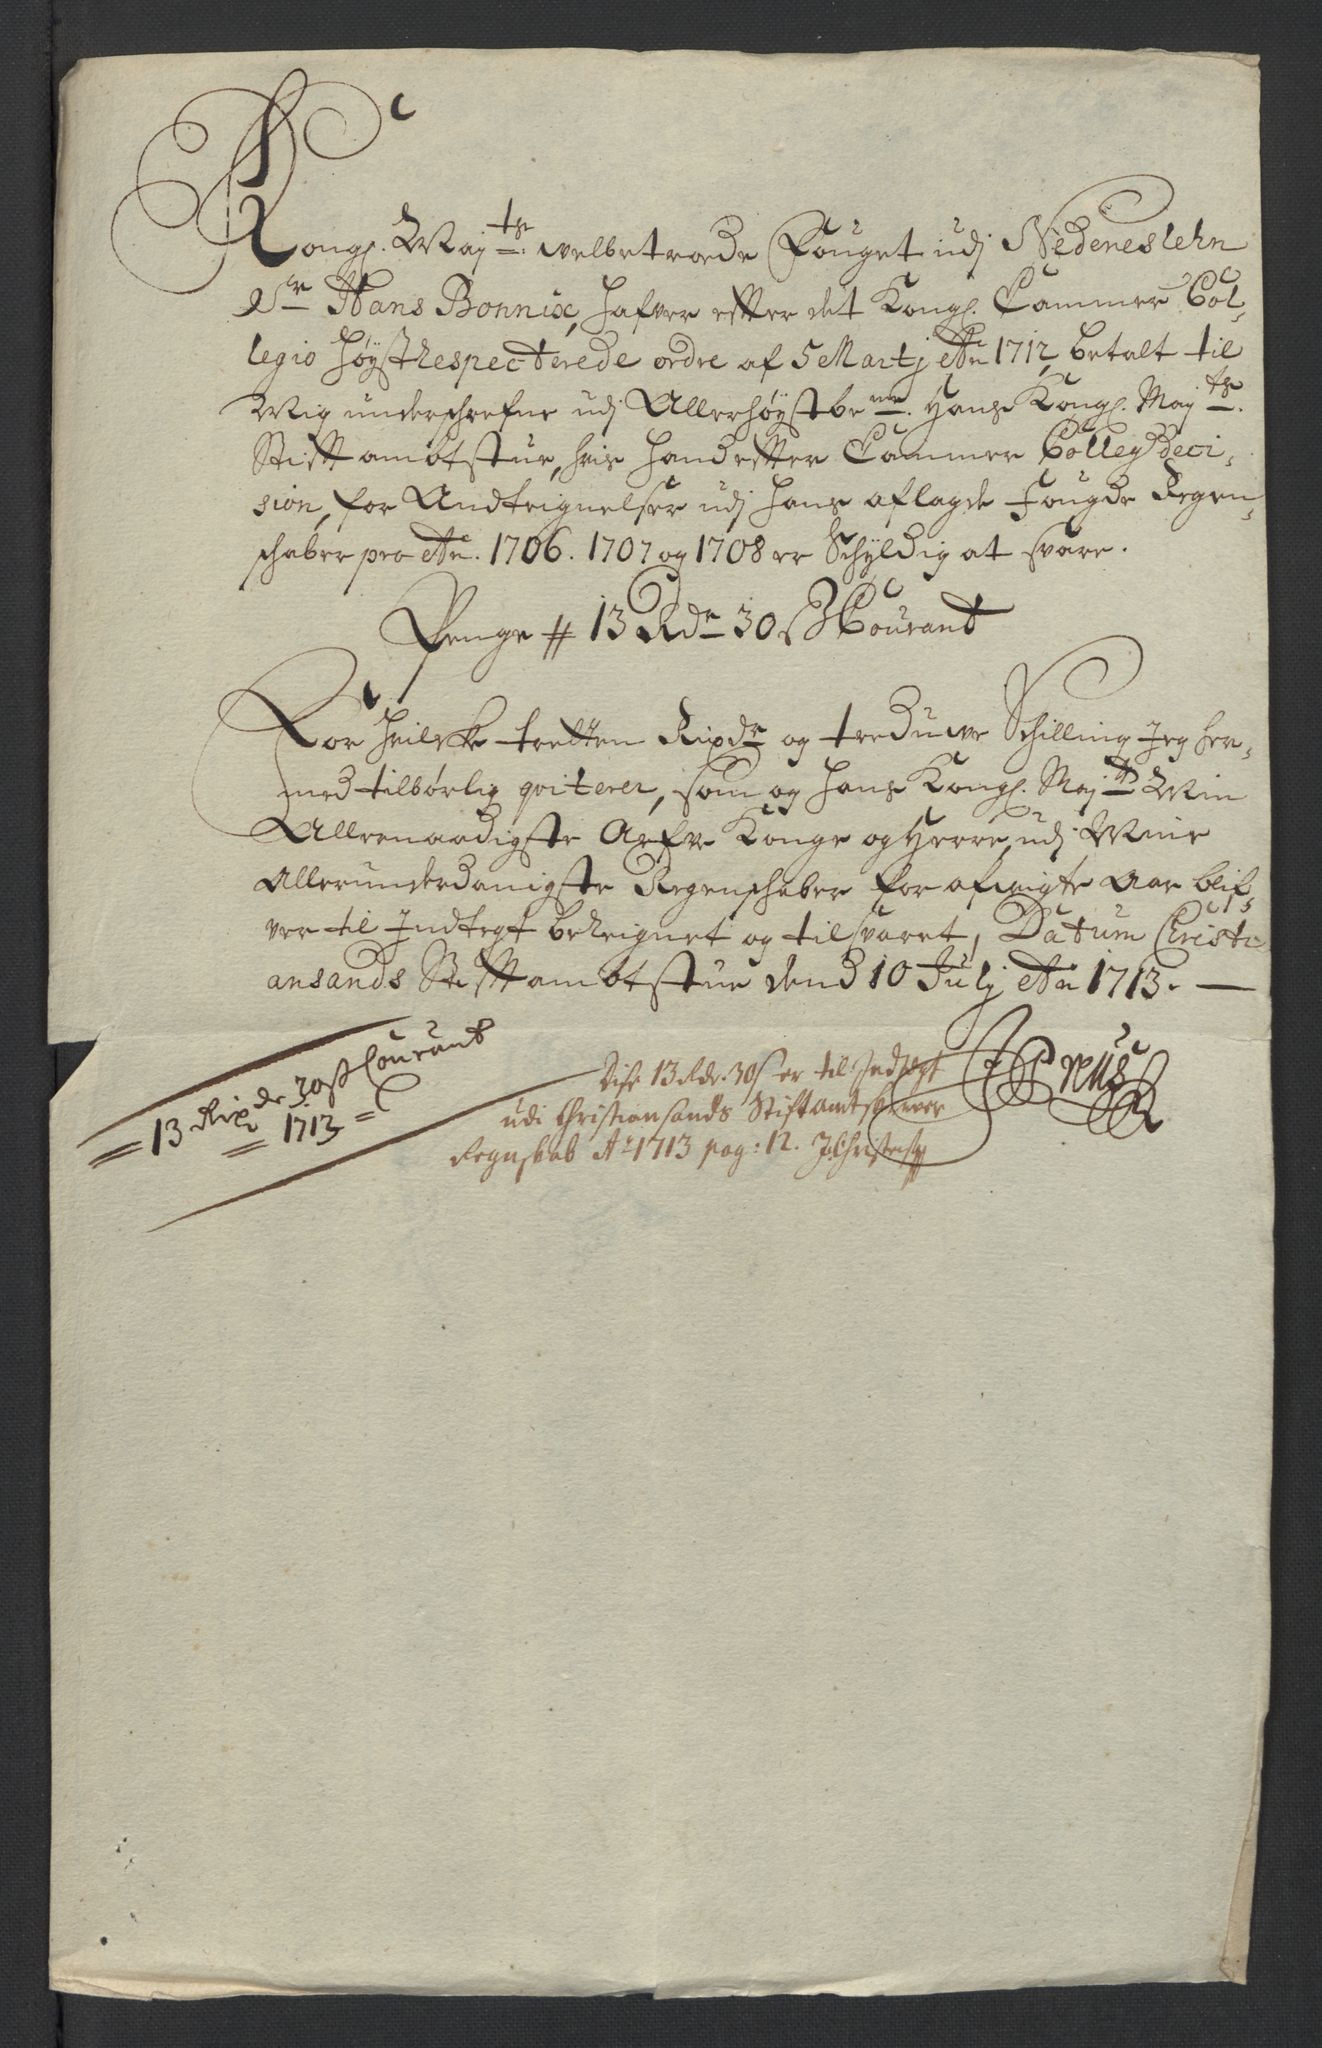 Kongl. May.ts velbetroede Fouget udj Nedeneslehn
Sr Hans Bonnix, hafver efter det Kongl. Cammer Col-
legio høystrespecterede ordre af 5 Martj Ao 1712, betalt til
Mig underschrefne udj Allerhøystbe.me Hans Kongl. May.ts
Stiftambtstue, hvis hand efter Cammer Colleg Deci-
sion, for Andteignelser udj hans aflagde fougde Regen-
schaber pro Ao. 1706. 1707 og 1708 er Schyldig at svare.
Penge # 13 Rdr 30 s Courant
For hvilcke tretten Rixdr og treduve Schilling Jeg her-
med tilbørlig qviterer, som og hans Kongl. May.ts Min
Allernaadigste Arfve Konge og Herre, udj Mine
Allerunderdanigste Regenschaber for afvigte Aar blif-
ver til Indtegt beregnet og tilsvaret, Datum Christi-
ansands Stiftambtstue dend 10 Julij Ao 1713.
13 Rixdr 30 s Courant
1713
Disse 13 Rdr. 30 s er til Indtegt
udi Christiansands Stiftamtskrever
Regnskab Ao 1713 pag: 12.